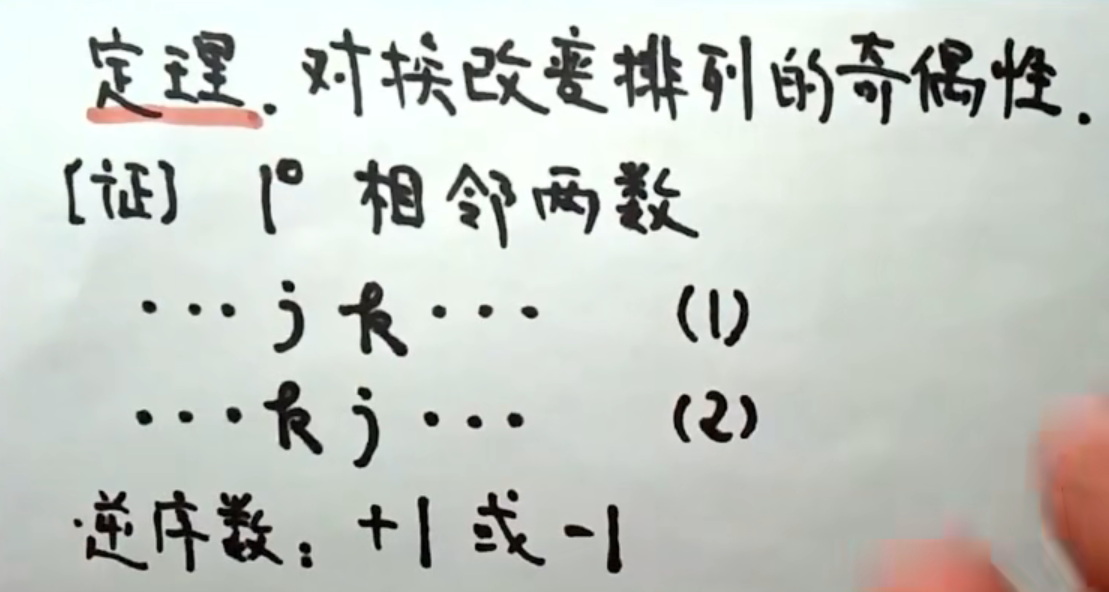 定理. 对换改变排列的奇偶性.
[证] 1° 相邻两数
··· j k ··· (1)
··· k j ··· (2)
逆序数: +1 或 -1